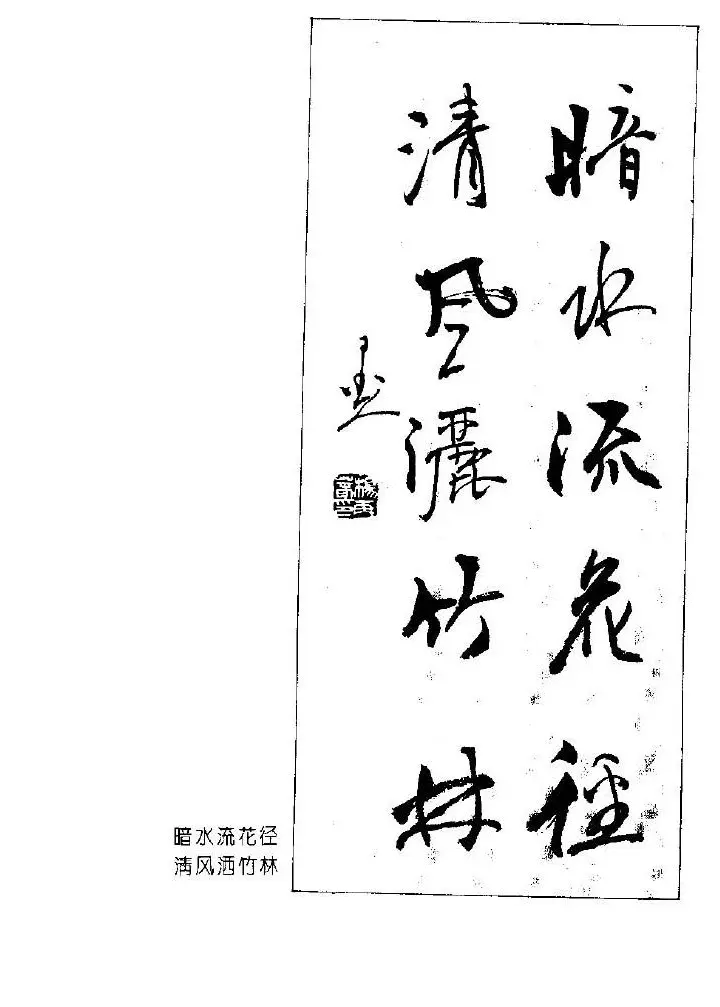 暗水流花径
清风灑竹林
暗水流花径
清风洒竹林